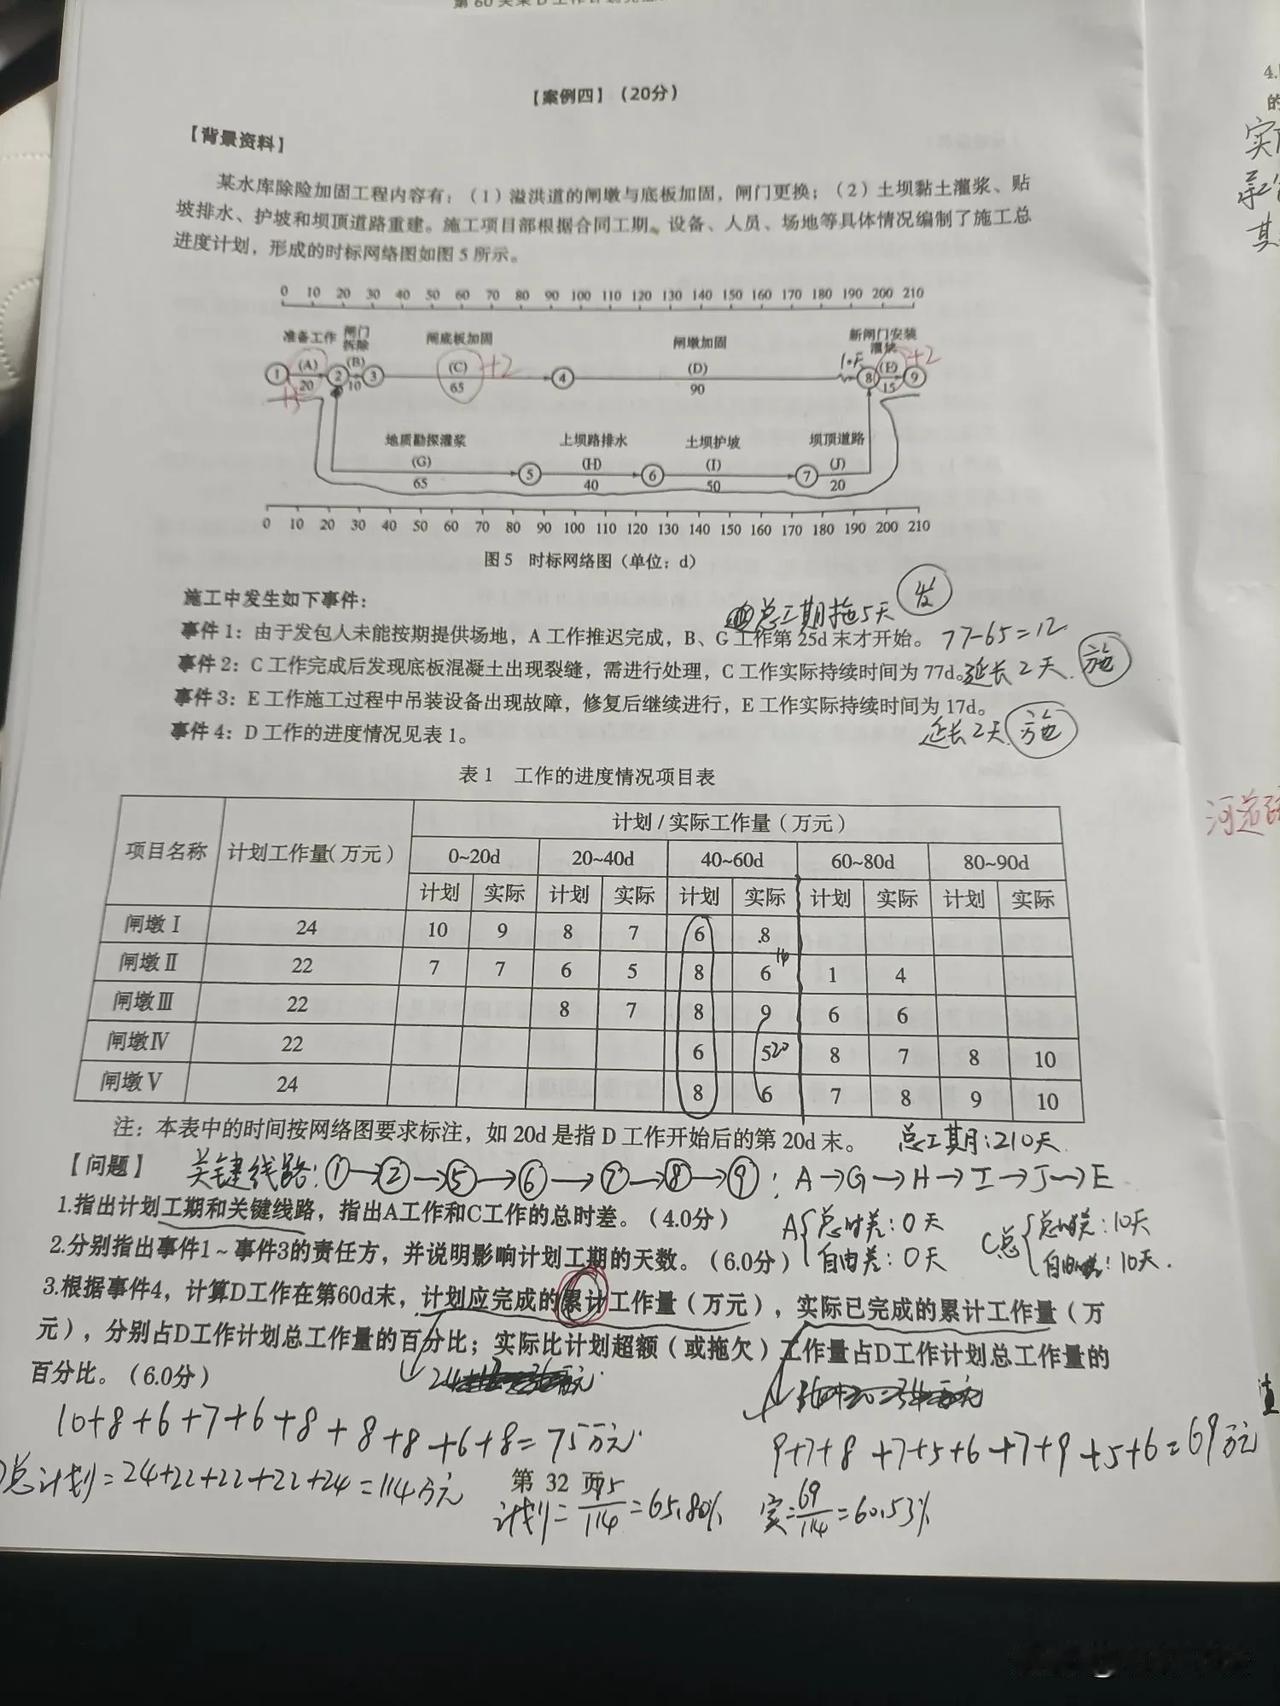 【案例四】（20分）
【背景资料】
某水库除险加固工程内容有：（1）溢洪道的闸墩与底板加固，闸门更换；（2）土坝黏土灌浆、贴
坡排水、护坡和坝顶道路重建。施工项目部根据合同工期、设备、人员、场地等具体情况编制了施工总
进度计划，形成的时标网络图如图 5 所示。
0 10 20 30 40 50 60 70 80 90 100 110 120 130 140 150 160 170 180 190 200 210
准备工作 闸门拆除 闸底板加固 闸墩加固 新闸门安装
① (A) 20 ② (B) 10 ③ (C) 65 +2 ④ (D) 90 ⑧ (E) 15 +2 ⑨
地质勘探灌浆 上坝路排水 土坝护坡 坝顶道路
(G) 65 ⑤ (H) 40 ⑥ (I) 50 ⑦ (J) 20
0 10 20 30 40 50 60 70 80 90 100 110 120 130 140 150 160 170 180 190 200 210
图 5 时标网络图（单位：d）
施工中发生如下事件：
总工期拖5天 发
事件 1：由于发包人未能按期提供场地，A 工作推迟完成，B、G 工作第 25d 末才开始。 77-65=12
事件 2：C 工作完成后发现底板混凝土出现裂缝，需进行处理，C 工作实际持续时间为 77d。延长2天. 施
事件 3：E 工作施工过程中吊装设备出现故障，修复后继续进行，E 工作实际持续时间为 17d。
延长2天. 施
事件 4：D 工作的进度情况见表 1。
表 1 工作的进度情况项目表
项目名称 计划工作量（万元） 计划 / 实际工作量（万元）
0~20d 20~40d 40~60d 60~80d 80~90d
计划 实际 计划 实际 计划 实际 计划 实际 计划 实际
闸墩Ⅰ 24 10 9 8 7 6 8
闸墩Ⅱ 22 7 7 6 5 8 6 1 4
闸墩Ⅲ 22 8 7 8 9 6 6
闸墩Ⅳ 22 6 5 8 7 8 10
闸墩Ⅴ 24 8 6 7 8 9 10
注：本表中的时间按网络图要求标注，如 20d 是指 D 工作开始后的第 20d 末。 总工期:210天
【问题】 关键线路:①→②→⑤→⑥→⑦→⑧→⑨; A→G→H→I→J→E
1.指出计划工期和关键线路，指出A工作和C工作的总时差。（4.0分） A 总时差:0天 C总 总时差:10天
2.分别指出事件1～事件3的责任方，并说明影响计划工期的天数。（6.0分） 自由差:0天 自由差:10天.
3.根据事件4，计算D工作在第60d末，计划应完成的累计工作量（万元），实际已完成的累计工作量（万
元），分别占D工作计划总工作量的百分比；实际比计划超额（或拖欠）工作量占D工作计划总工作量的
百分比。（6.0分）
10+8+6+7+6+8+8+8+6+8=75万元
9+7+8+7+5+6+7+9+5+6=69万元
总计划=24+22+22+22+24=114万元
第 32 页
计划=75/114=65.80% 实=69/114=60.53%